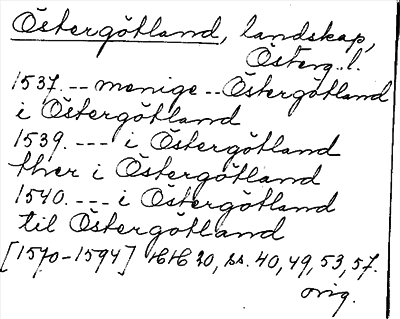 Östergötland, landskap,
Österg. l.
1537. -- menige -- Östergötland
i Östergötland
1539. --- i Östergötland
ther i Östergötland
1540. --- i Östergötland
til Östergötland
[1570-1594] HH 20, ss. 40, 49, 53, 57.
orig.